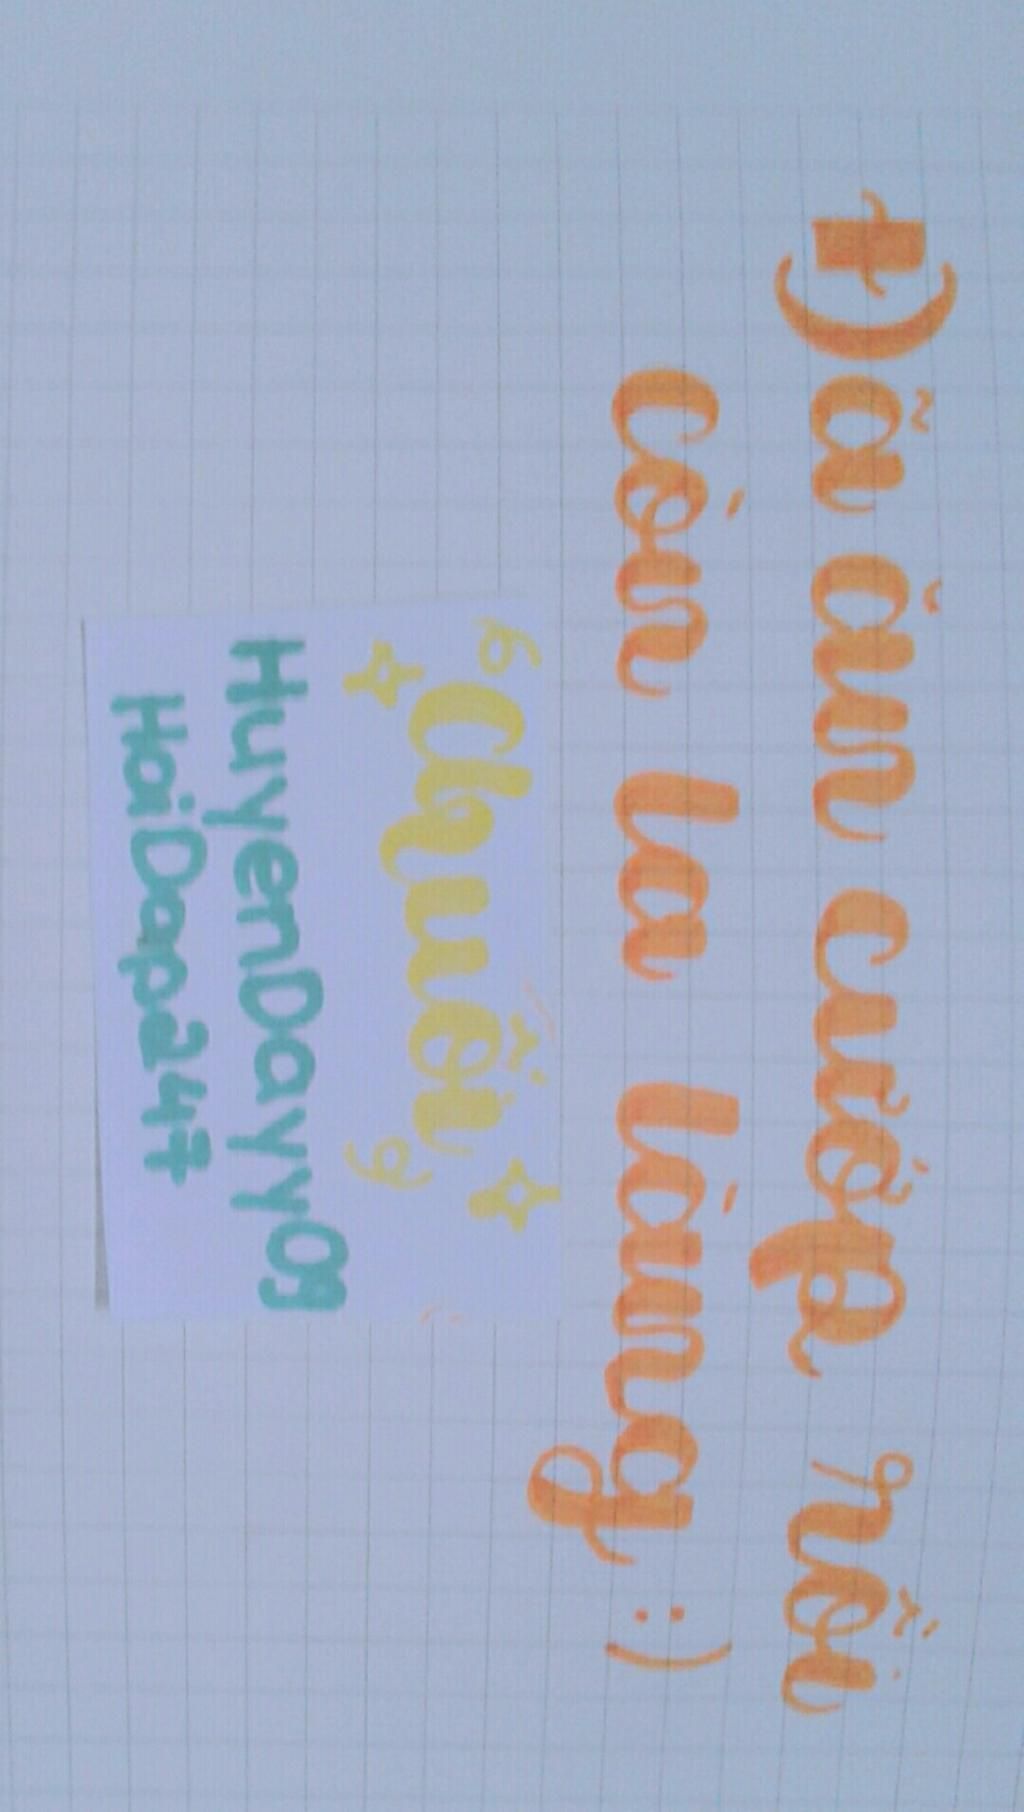 +) Đã ăn cướp rồi
còn la làng :)
Chuối
HuyenDayy09
HoiDap247